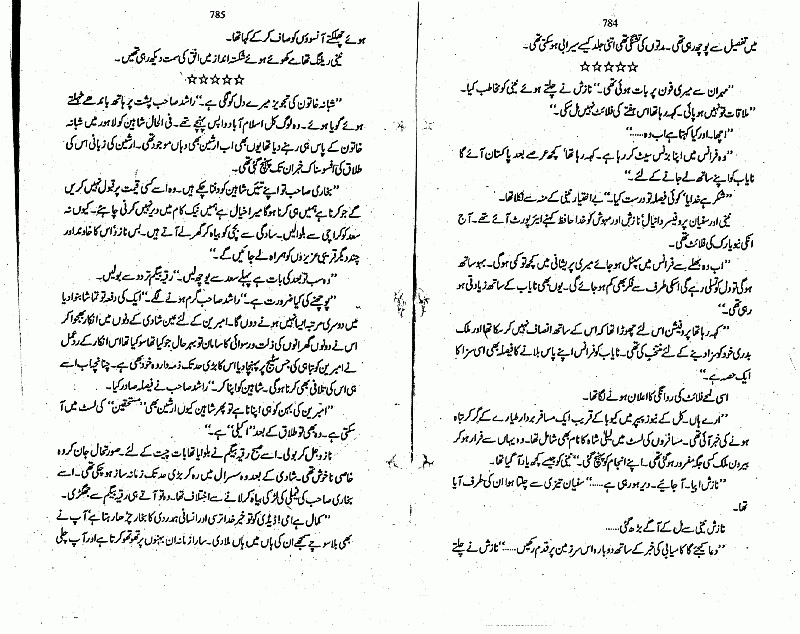 784
میں تفصیل سے پوچھ رہی تھی۔ مدتوں کی تشنگی تھی اتنی جلد کیسے سیرابی ہو سکتی تھی۔
☆☆☆☆☆
”مہران سے میری فون پر بات ہوئی تھی۔“ نازش نے چلتے ہوئے عینی کو مخاطب کیا۔
”ملاقات تو نہیں ہو پائی۔ کہہ رہا تھا اس ہفتے کی فلائٹ نہیں مل سکی۔“
”اچھا۔ اور کیا کہتا ہے اب وہ......“
”وہ فرانس میں اپنا بزنس سیٹ کر رہا ہے۔ کہہ رہا تھا‘ کچھ عرصے بعد پاکستان آئے گا
نایاب کو اپنے ساتھ لے جانے کے لئے۔“
”شکر ہے خدایا‘ کوئی فیصلہ تو درست کیا۔“ بے اختیار عینی کے منہ سے نکلا تھا۔
عینی اور سفیان پروفیسر دانیال‘ نازش اور مہوش کو خدا حافظ کہنے ایئرپورٹ آئے تھے۔ آج
انکی نیویارک کی فلائٹ تھی۔
”اب وہ بھلے سے فرانس میں سیٹل ہو جائے میری پریشانی میں کچھ تو کمی ہو گی۔ بہو ساتھ
ہو گی تو دل کو تسلی رہے گی اسکی طرف سے فکر بھی کم ہو جائے گی۔ یوں بھی نایاب کے ساتھ زیادتی ہو
رہی تھی۔“
”کہہ رہا تھا پروفیشن اس لئے چھوڑا تھا کہ اس کے ساتھ انصاف نہیں کر سکا تھا اور ملک
بدری خود کو سزا دینے کے لئے منتخب کی تھی۔ نایاب کو فرانس اپنے پاس بلانے کا فیصلہ بھی اسی سزا کا
ایک حصہ ہے۔“
اسی لمحے فلائٹ کی روانگی کا اعلان ہونے لگا تھا۔
”ارے ہاں۔ کل کے نیوز پیپر میں کیوبا کے قریب ایک مسافر بردار طیارے کے گر کر تباہ
ہونے کی خبر آئی تھی۔ مسافروں کی لسٹ میں لیلیٰ شاہ کا نام بھی شامل تھا۔ وہ یہاں سے فرار ہو کر
بیرون ملک کسی جگہ مفرور ہو گئی تھی۔ اپنے انجام کو پہنچ گئی۔“ عینی کو جیسے کچھ یاد آ گیا تھا۔
”نازش آپا۔ آ جائیے۔ دیر ہو رہی ہے......“ سفیان تیزی سے چلتا ہوا ان کی طرف آیا
تھا۔
نازش عینی سے مل کے آگے بڑھ گئی......
”دعا کیجئے گا کامیابی کی خبر کے ساتھ دوبارہ اس سرزمین پر قدم رکھیں......“ نازش نے چلتے
785
ہوئے چھلکتے آنسوؤں کو صاف کر کے کہا تھا۔
عینی ریلنگ تھامے کھوئے ہوئے شکستہ انداز میں افق کی سمت دیکھ رہی تھیں۔
☆☆☆☆☆
”شبانہ خاتون کی تجویز میرے دل کو لگی ہے۔“ راشد صاحب پشت پر ہاتھ باندھے ٹہلتے
ہوئے گویا ہوئے۔ وہ لوگ کل اسلام آباد واپس پہنچے تھے۔ فی الحال شاہین کو لاہور میں شبانہ
خاتون کے پاس ہی رہنے دیا تھا یوں بھی اب ارشین بھی وہاں موجود تھی۔ ارشین کی زبانی اس کی
طلاق کی افسوسناک خبر ان تک پہنچ گئی تھی۔
”بخاری صاحب تو اپنے تئیں شاہین کو دفنا چکے ہیں۔ وہ اسے کسی قیمت پر قبول نہیں کریں
گے جو کرنا ہے ہمیں ہی کرنا ہو گا میرا خیال ہے ہمیں نیک کام میں دیر نہیں کرنی چاہئے۔ کیوں نہ
سعد کو کراچی سے بلوا لیں۔ سادگی سے بچی کو بیاہ کر گھر لے آتے ہیں۔ بس ناز و اس کا خاوند اور
چند دیگر قریبی عزیزوں کو ہمراہ لے جائیں گے۔“
”وہ سب تو بعد کی بات ہے پہلے سعد سے پوچھ لیں۔“ رقیہ بیگم تردد سے بولیں۔
”پوچھنے کی کیا ضرورت ہے۔“ راشد صاحب گرم ہونے لگے۔ ”ایک دفعہ تو تماشا بنوا دیا
میں دوسری مرتبہ ایسا نہیں ہونے دوں گا۔ امبرین کے لئے عین شادی کے دنوں میں انکار بھجوا کر
اس نے دونوں گھرانوں کی ذلت و رسوائی کا سامان تو بہرحال جو کیا تھا سو کیا تھا اس انکار کے ردعمل
نے امبرین کو تباہی کی جس سٹیج پر پہنچا دیا اس کا بڑی حد تک ذمہ دار وہ خود بھی ہے۔ چنانچہ اب اسے
ہی اس کی تلافی بھی کرنا ہو گی۔ شاہین کو اپنا کر۔“ راشد صاحب نے فیصلہ صادر کیا۔
”امبرین کی بہن کو ہی اپنانا ہے تو پھر شاہین کیوں ارشین بھی ”مستحقین“ کی لسٹ میں آ
سکتی ہے۔ وہ بھی تو طلاق کے بعد ”اکیلی“ ہے۔“
نازو جل کر بولی۔ اسے صبح رقیہ بیگم نے بلوایا تھا بات چیت کے لئے۔ صورتحال جان کر وہ
خاصی ناخوش تھی۔ شادی کے بعد وہ سسرال میں رہ کر بڑی حد تک زمانہ ساز ہو چکی تھی۔ اسے
بخاری صاحب کی فیملی کی لڑکی بیاہ کر لانے سے اختلاف تھا۔ وہ تو آتے ہی رقیہ بیگم سے جھگڑی۔
”کمال ہے امی! ڈیڈی کو تو خیر خدا ترسی اور انسانی ہمدردی کا بخار چڑھا رہتا ہے‘ آپ نے
بھی بلا سوچے سمجھے ان کی ہاں میں ہاں ملا دی۔ سارا زمانہ ان بہنوں پر تھو تھو کرتا ہے اور آپ چلی